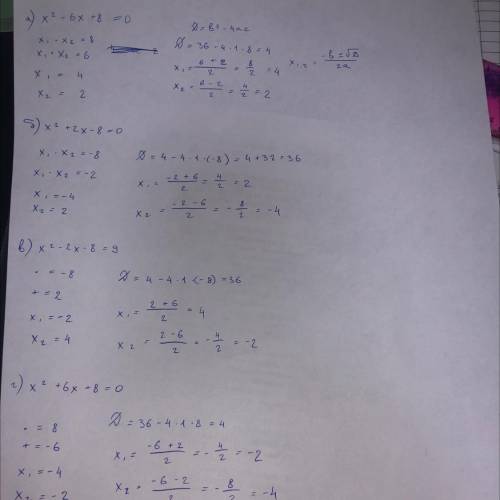 а) x² - 6x + 8 = 0
x₁ · x₂ = 8
x₁ + x₂ = 6
x₁ = 4
x₂ = 2
D = b² - 4ac
D = 36 - 4 · 1 · 8 = 4
x₁ = (6 + 2)/2 = 8/2 = 4
x₂ = (6 - 2)/2 = 4/2 = 2
x₁,₂ = (-b ± √D)/2a
б) x² + 2x - 8 = 0
x₁ · x₂ = -8
x₁ · x₂ = -2
x₁ = -4
x₂ = 2
D = 4 - 4 · 1 · (-8) = 4 + 32 = 36
x₁ = (-2 + 6)/2 = 4/2 = 2
x₂ = (-2 - 6)/2 = -8/2 = -4
в) x² - 2x - 8 = 9
· = -8
+ = 2
x₁ = -2
x₂ = 4
D = 4 - 4 · 1 · (-8) = 36
x₁ = (2 + 6)/2 = 4
x₂ = (2 - 6)/2 = -4/2 = -2
г) x² + 6x + 8 = 0
· = 8
+ = -6
x₁ = -4
x₂ = -2
D = 36 - 4 · 1 · 8 = 4
x₁ = (-6 + 2)/2 = -4/2 = -2
x₂ = (-6 - 2)/2 = -8/2 = -4